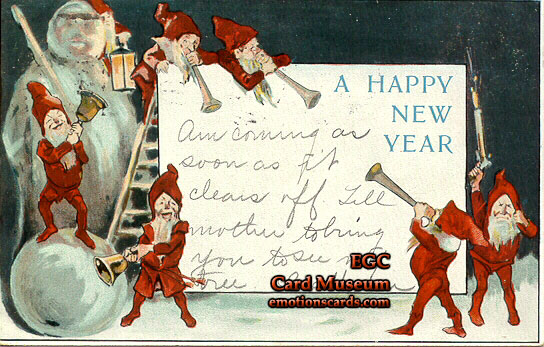 A HAPPY
NEW
YEAR
Am coming as
soon as it
clears off. Tell
mother to bring
you to see
Tree
EGC
Card Museum
emotionscards.com